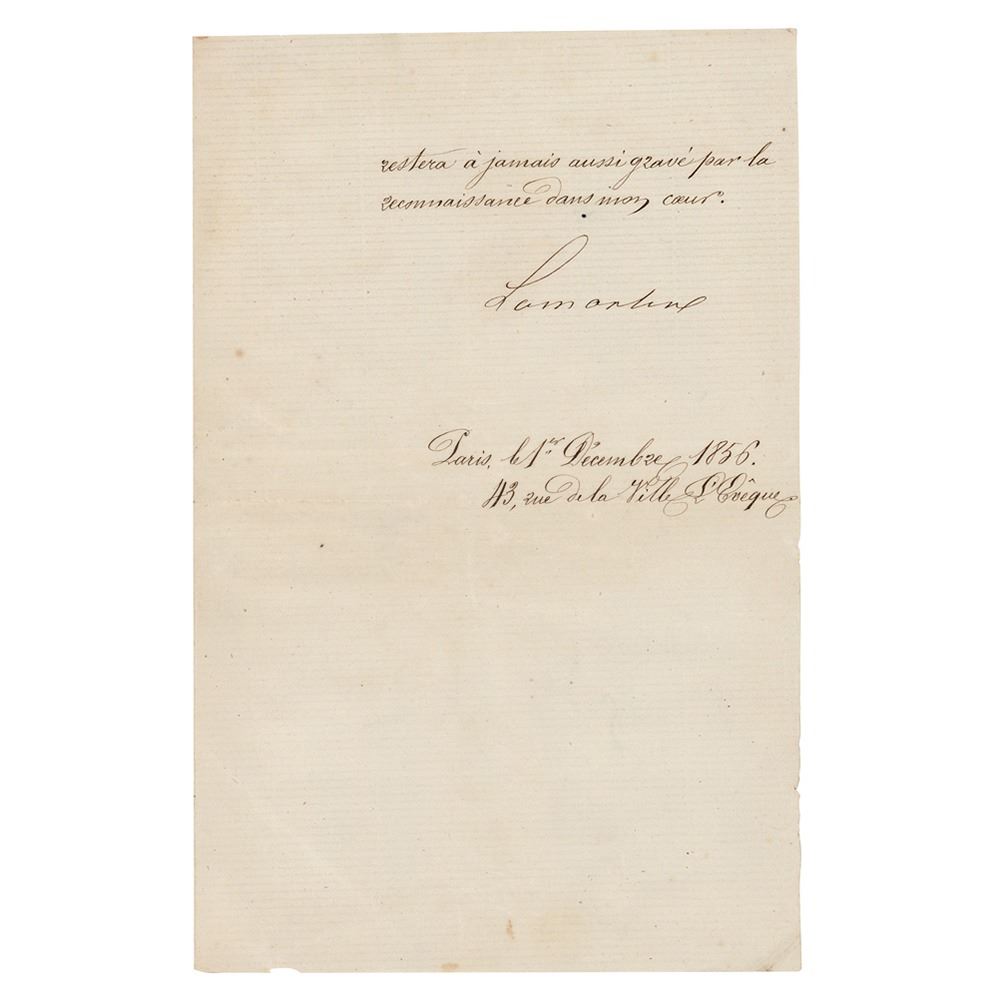 restera à jamais aussi gravé par la
reconnaissance dans mon cœur.
Lamartine
Paris, le 1er Décembre 1856.
43, rue de la Ville L'Evêque